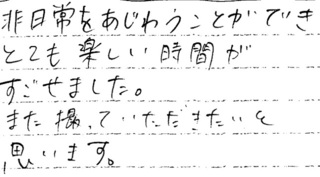 非日常をあじわうことができ
とても楽しい時間が
すごせました。
また撮っていただきたいと
思います。